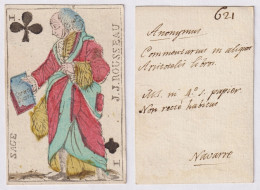 I
SAGE
J.J. ROUSSEAU
I
621
Anonymus
Commentarius in aliquos
Aristotelis libros.
MS. in 4°. s. papier
Non rosté habitus
Navarre